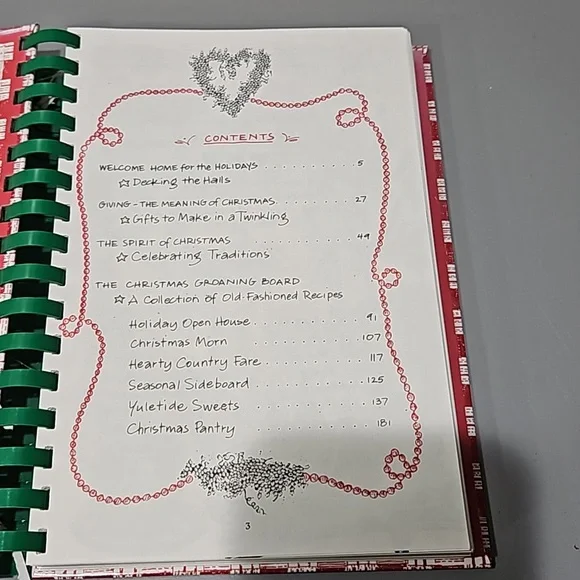 CONTENTS
WELCOME HOME for the HOLIDAYS . . . . . . . . . . . . 5
☆ Decking the Halls
GIVING - THE MEANING of CHRISTMAS. . . . . . . . . . . 27
☆ Gifts to Make in a Twinkling
THE SPIRIT of CHRISTMAS . . . . . . . . . . . . 49
☆ Celebrating Traditions
THE CHRISTMAS GROANING BOARD
☆ A Collection of Old-Fashioned Recipes
Holiday Open House . . . . . . . . . . . 91
Christmas Morn . . . . . . . . . . . 107
Hearty Country Fare . . . . . . . . . . 117
Seasonal Sideboard . . . . . . . . . . . 125
Yuletide Sweets . . . . . . . . . . . 137
Christmas Pantry . . . . . . . . . . . 181
3